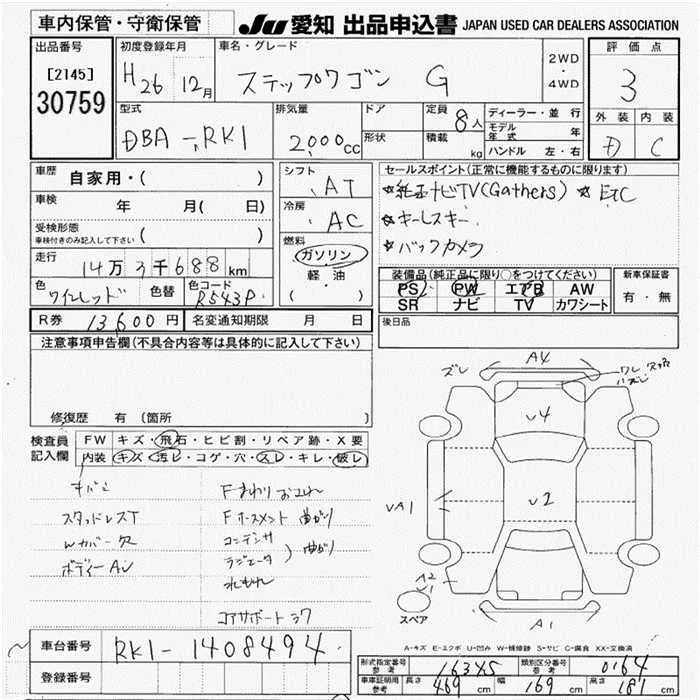 車内保管・守衛保管
JU 愛知 出品申込書 JAPAN USED CAR DEALERS ASSOCIATION
出品番号
[2145]
30759
初度登録年月
H26 12月
車名・グレード
ステップワゴン G
2WD
・
4WD
評価点
3
型式
DBA-RK1
排気量
2000cc
ドア
形状
定員 8人
積載 kg
ディーラー・並行
モデル年式 年
ハンドル 左・右
外装 内装
D C
車歴 自家用・( )
車検 年 月( 日)
受検形態
車検付きのみ記入して下さい ( )
走行 14万3千688km
色 ワインレッド 色替 色コード R543P
シフト AT
冷房 AC
燃料
ガソリン
軽・油
( ・ )
セールスポイント(正常に機能するものに限ります)
☆純正ナビTV(Gathers) ☆ETC
☆キーレスキー
☆バックカメラ
装備品(純正品に限り○をつけてください)
PS PW エアB AW
SR ナビ TV カワシート
新車保証書
有・無
R券 13,600円 名変通知期限 月 日
後日品
注意事項申告欄(不具合内容等は具体的に記入して下さい)
修復歴 有 〔箇所
検査員記入欄
FW キズ・飛石・ヒビ割・リペア跡・X要
内装 キズ・汚レ・コゲ・穴・スレ・キレ・破レ
スタッドレスT
Wカバー欠
ボディーAU
Fまわりおこれ
Fホースメント曲がり
コンデンサ
ラジエータ
) 曲がり
水もれ
コアサポートミク
ズレ A4
ワレ
ハズレ
U4
U2
UA1
A2
A1
スペア
A-キズ E-エクボ U-凹み W-補修跡 S-サビ C-腐食 XX-交換済
車台番号 RK1-1408494
登録番号
形式指定番号 参考 16345 類別区分番号 参考 0164
車庫証明用 参考 長さ 469cm 幅 169cm 高さ 181cm